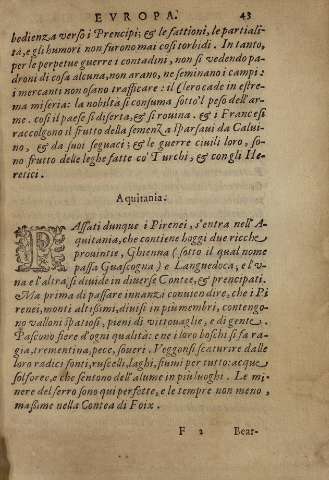 EVROPA. 43
bedienza verso i Prencipi; & le fattioni, le partiali-
tà, e gli humori non furono mai così torbidi. In tanto,
per le perpetue guerre i contadini, non si vedendo pa-
droni di cosa alcuna, non arano, ne seminano i campi:
i mercanti non osano trafficare: il Clero cade in estre-
ma miseria: la nobiltà si consuma sotto'l peso dell'ar-
me. così il paese si diserta, & si rouina. & i Francesi
raccolgono il frutto della semenza sparsaui da Calui-
no, & da suoi seguaci: & le guerre ciuili loro, so-
no frutto delle leghe fatte co' Turchi, & con gli He-
retici.
Aquitania.
PAssati dunque i Pirenei, s'entra nell'A-
quitania, che contiene hoggi due ricche
prouintie, Ghienna (sotto il qual nome
passa Guascogna) e Languedoca, e l'v-
na e l'altra, si divide in diverse Contee, & prencipati.
Ma prima di passare innanzi conuien dire, che i Pi
renei, monti altissimi, diuisi in più membri, contengo-
no valloni spatiosi, pieni di vittouaglie, e di gente.
Pascono fiere d'ogni qualità: e ne i loro boschi si fa ra-
gia, trementina, pece, soueri. Veggonsi scaturire dalle
loro radici fonti, ruscelli, laghi, fiumi per tutto: acque
solforee, e che sentono dell'alume in più luoghi. Le mi-
nere del ferro sono qui perfette, e le tempre non meno,
massime nella Contea di Foix.
F 2 Bear-